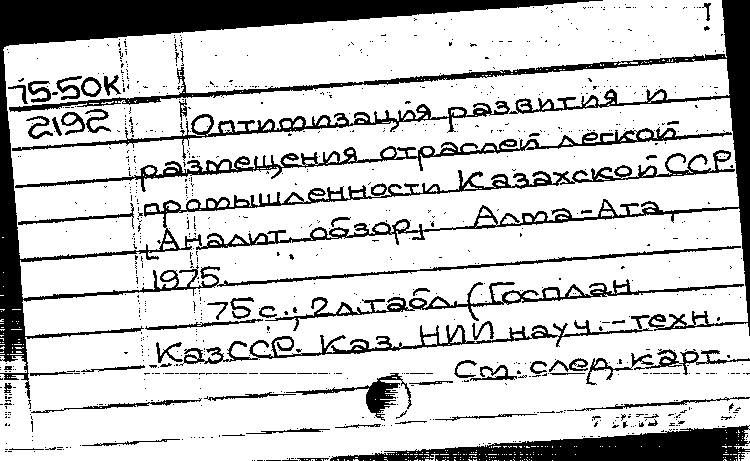 75-50К
2192
Оптимизация развития и
размещения отраслей легкой
промышленности Казахской ССР.
[Аналит. обзор]. Алма-Ата,
1975.
75 с.; 2 л.табл. (Госплан
КазССР. Каз. НИИ науч.-техн.
См. след. карт.